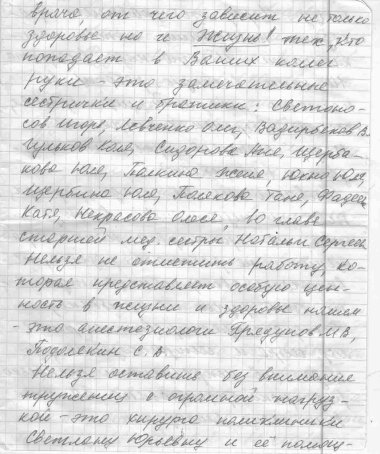 врача, от чего зависит не только
здоровье но и Жизнь! тех, кто
попадает в Ваших коллег
руки - это замечательные
сестрички и братики: Светоно-
сов Игорь, Левченко Олег, В.
Юля, Сидорова Аня, Щерба-
кова Юля, Женя, Юля,
Щербина Юля, Полякова Таня,
Катя, Некрасова Олеся, во главе
старшей мед. сестры Натальи Сергеев
Нельзя не отметить работу, ко-
торая представляет особую цен-
ность в жизни и здоровье нашем
- это анестезиологи М.В,
С.В.
Нельзя оставить без внимания
труженицу с огромной нагруз-
кой - это хирурга поликлиники
Светлану Юрьевну и её помощ-